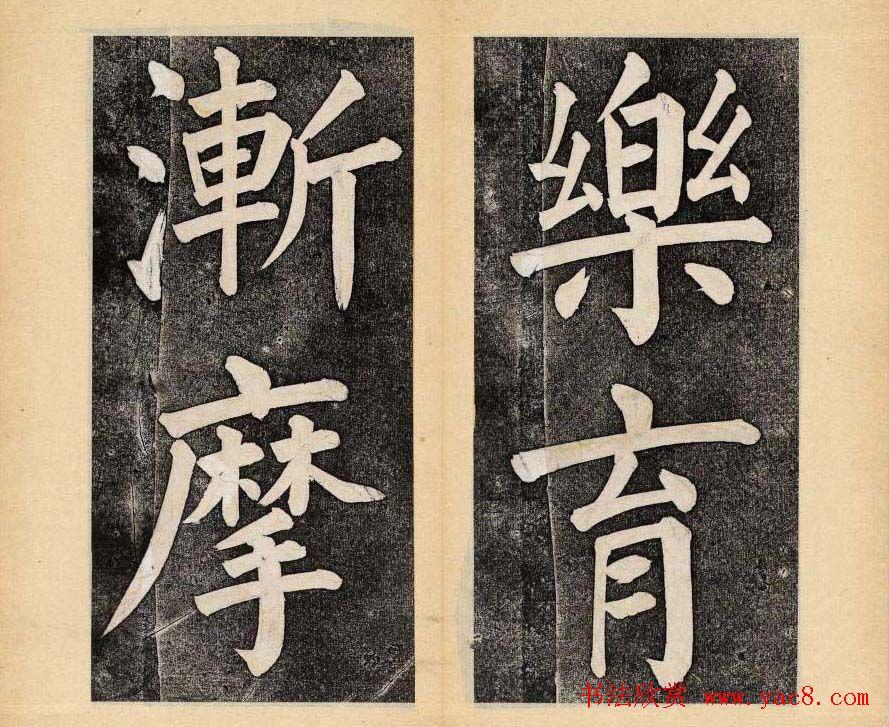 樂育
漸摩
书法欣赏 www.yac8.com